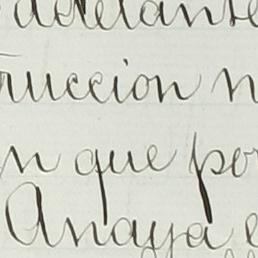 adelante
trucción n
n que por
Anaya e